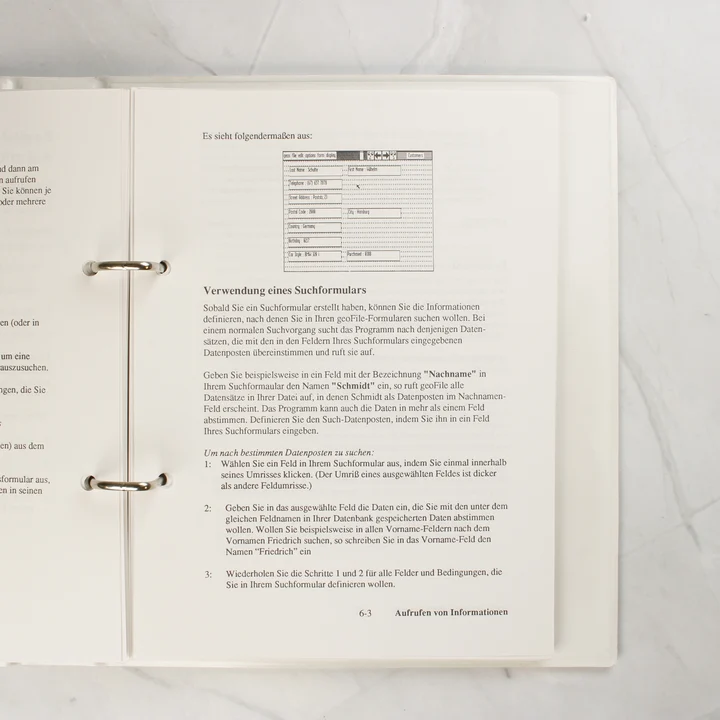 nd dann am
n aufrufen
Sie können je
oder mehrere
en (oder in
um eine
auszusuchen.
ngen, die Sie
en) aus dem
sformular aus,
en in seinen
Es sieht folgendermaßen aus:
geos file edit options form display
Customers
Last Name : Schulte
First Name : Wilhelm
Telephone :
Street Address :
Postal Code :
City : Hamburg
Country : Germany
Birthday :
Car Style :
Purchased :
Verwendung eines Suchformulars
Sobald Sie ein Suchformular erstellt haben, können Sie die Informationen
definieren, nach denen Sie in Ihren geoFile-Formularen suchen wollen. Bei
einem normalen Suchvorgang sucht das Programm nach denjenigen Daten-
sätzen, die mit den in den Feldern Ihres Suchformulars eingegebenen
Datenposten übereinstimmen und ruft sie auf.
Geben Sie beispielsweise in ein Feld mit der Bezeichnung "Nachname" in
Ihrem Suchformaular den Namen "Schmidt" ein, so ruft geoFile alle
Datensätze in Ihrer Datei auf, in denen Schmidt als Datenposten im Nachnamen-
Feld erscheint. Das Programm kann auch die Daten in mehr als einem Feld
abstimmen. Definieren Sie den Such-Datenposten, indem Sie ihn in ein Feld
Ihres Suchformulars eingeben.
Um nach bestimmten Datenposten zu suchen:
1: Wählen Sie ein Feld in Ihrem Suchformular aus, indem Sie einmal innerhalb
seines Umrisses klicken. (Der Umriß eines ausgewählten Feldes ist dicker
als andere Feldumrisse.)
2: Geben Sie in das ausgewählte Feld die Daten ein, die Sie mit den unter dem
gleichen Feldnamen in Ihrer Datenbank gespeicherten Daten abstimmen
wollen. Wollen Sie beispielsweise in allen Vorname-Feldern nach dem
Vornamen Friedrich suchen, so schreiben Sie in das Vorname-Feld den
Namen "Friedrich" ein
3: Wiederholen Sie die Schritte 1 und 2 für alle Felder und Bedingungen, die
Sie in Ihrem Suchformular definieren wollen.
6-3 Aufrufen von Informationen